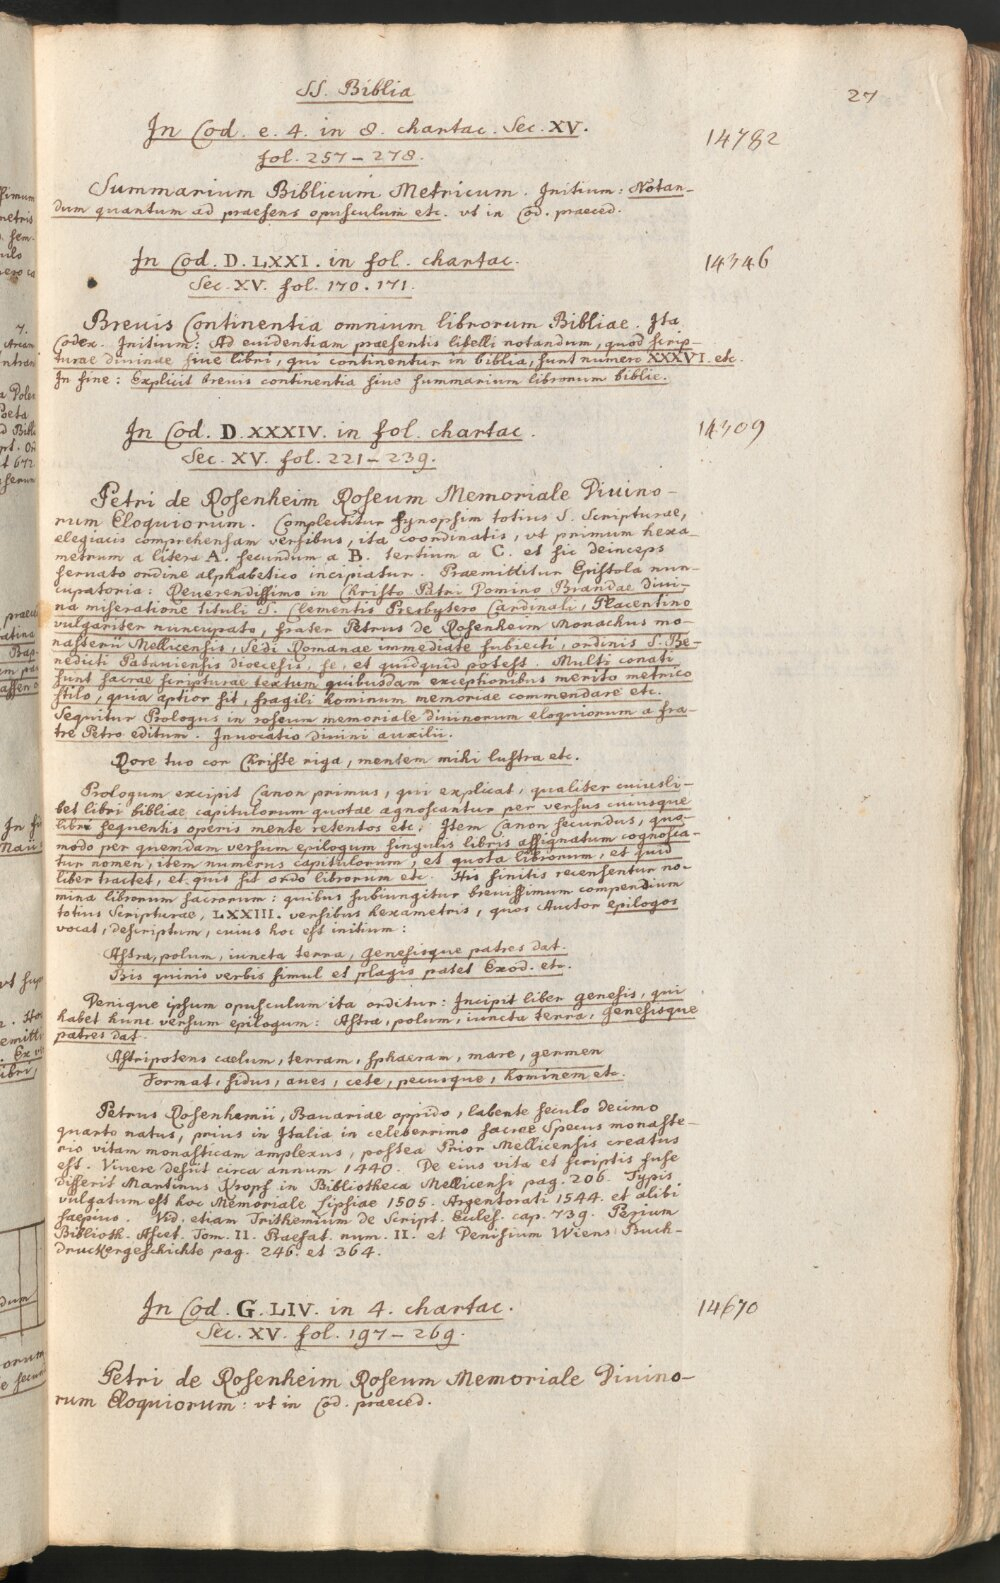 SS. Biblia
27
In Cod. e. 4. in 8. chartac. Sec. XV.
14782
fol. 257 – 278.
Summarium Biblicum Metricum. Initium: Notan-
dum quantum ad praesens opusculum etc. vt in Cod. praeced.
In Cod. D. LXXI. in fol. chartac.
14346
Sec. XV. fol. 170. 171.
Breuis Continentia omnium librorum Bibliae. Ita
Codex. Initium: Ad euidentiam praesentis libelli notandum, quod scrip-
turae diuinae siue libri, qui continentur in biblia, sunt numero XXXVI. etc.
In fine: Explicit breuis continentia siue summarium librorum biblie.
In Cod. D. XXXIV. in fol. chartac.
14309
Sec. XV. fol. 221 – 239.
Petri de Rosenheim Roseum Memoriale Diuino-
rum Eloquiorum. Complectitur synopsim totius S. Scripturae,
elegiacis comprehensam versibus, ita coordinatis, vt primum hexa-
metrum a litera A. secundum a B. tertium a C. et sic deinceps
seruato ordine alphabetico incipiatur. Praemittitur Epistola nun-
cupatoria: Reuerendissimo in Christo Patri Domino Brandae diui-
na miseratione tituli S. Clementis Presbytero Cardinali, Placentino
vulgariter nuncupato, frater Petrus de Rosenheim Monachus mo-
nasterii Mellicensis, Sedi Romanae immediate subiecti, ordinis S. Be-
nedicti Patauiensis dioecesis, se, et quidquid potest. Multi conati
sunt sacrae scripturae textum quibusdam exceptionibus merito metrico
stilo, quia aptior sit, fragili hominum memoriae commendare etc.
Sequitur Prologus in roseum memoriale diuinorum eloquiorum a fra-
tre Petro editum. Inuocatio diuini auxilii.
Rore tuo cor Christe riga, mentem mihi lustra etc.
Prologum excipit Canon primus, qui explicat, qualiter cuiusli-
bet libri bibliae capitulorum quotae agnoscantur per versus cuiusque
libri sequentis operis mente retentos etc. Item Canon secundus, quo-
modo per quemdam versum epilogum singulis libris assignatum cognosca-
tur nomen, item numerus capitulorum, et quota librorum, et quid
liber tractet, et quis sit ordo librorum etc. His finitis recensentur no-
mina librorum sacrorum: quibus subiungitur breuissimum compendium
totius Scripturae, LXXIII. versibus hexametris, quos Auctor epilogos
vocat, descriptum, cuius hoc est initium:
Astra, polum, iuncta terra, Genesisque patres dat.
Bis quinis verbis simul et plagis patet Exod. etc.
Denique ipsum opusculum ita orditur: Incipit liber genesis, qui
habet hunc versum epilogum: Astra, polum, iuncta terra, Genesisque
patres dat.
Astripotens caelum, terram, sphaeram, mare, germen
Format, sidus, aues, cete, pecusque, hominem etc.
Petrus Rosenhemii, Bauariae oppido, labente seculo decimo
quarto natus, prius in Italia in celeberrimo sacrae Specus monaste-
rio vitam monasticam amplexus, postea Prior Mellicensis creatus
est. Viuere desiit circa annum 1440. De eius vita et scriptis fuse
differit Martinus Kropf in Bibliotheca Mellicensi pag. 206. Typis
vulgatum est hoc Memoriale Lipsiae 1505. Argentorati 1544. et alibi
saepius. Vid. etiam Trithemium de Script. Eccles. cap. 739. Pezium
Biblioth. Ascet. Tom. II. Praefat. num. II. et Denisium Wiens Buch-
druckergeschichte pag. 246. et 364.
In Cod. G. LIV. in 4. chartac.
14670
Sec. XV. fol. 197 – 269.
Petri de Rosenheim Roseum Memoriale Diuino-
rum Eloquiorum: vt in Cod. praeced.